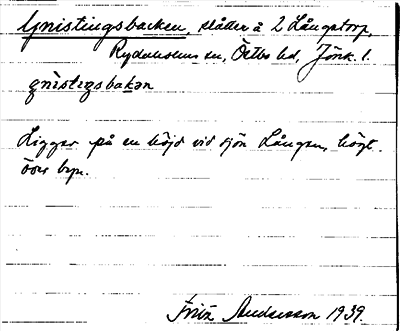 Gnistingsbacken, slätter å 2 Långstorp,
Rydaholms sn, Östbo hd, Jönk. l.
gnistıŋsbakən
Ligger på en höjd vid sjön Lången, högt
över byn.
Frid Andersson 1939.